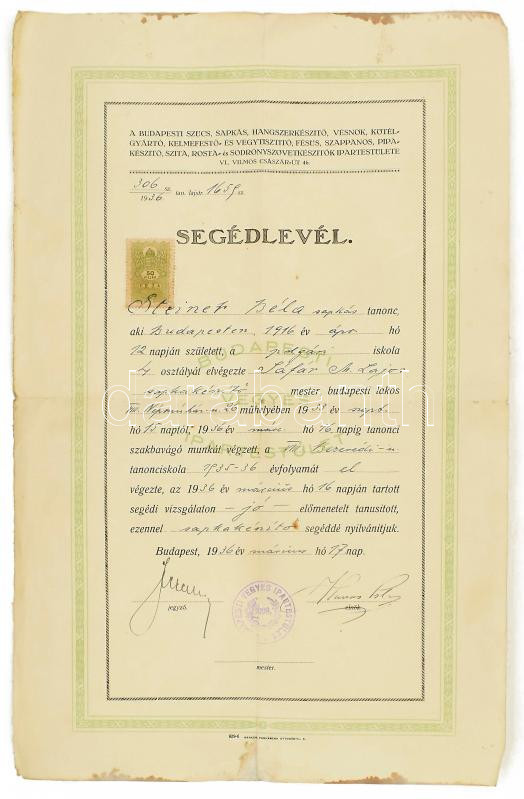 A BUDAPESTI SZŰCS, SAPKÁS, HANGSZERKÉSZÍTŐ, VÉSNÖK, KÖTÉL-
GYÁRTÓ, KELMEFESTŐ- ÉS VEGYTISZTITÓ, FÉSŰS, SZAPPANOS, PIPA-
KÉSZITŐ, SZITA, ROSTA- és SODRONYSZÖVETKÉSZITŐK IPARTESTÜLETE
VI. VILMOS CSÁSZÁR-ÚT
306 sz. 1936 tan. lajstr. 1659 sz.
SEGÉDLEVÉL.
50
Steiner Béla sapkás tanonc,
aki Budapesten, 1916 év ápr. hó
12 napján született, a polgári iskola
4 osztályát elvégezte Sáfár Lajos
sapkakészítő mester budapesti lakos
műhelyében 1933 év szept.
hó 15 naptól, 1936 év márc. hó 16 napig tanonci
szakbavágó munkát végzett, a Bezerédi-u
tanonciskola 1935-36 évfolyamát el
végezte, az 1936 év március hó 16 napján tartott
segédi vizsgálaton - jó - előmenetelt tanusított,
ezennel sapkakészítő segéddé nyilvánítjuk.
Budapest, 1936 év március hó 17 nap.
BUDAPESTI
VEGYES
IPARTESTÜLET
jegyző.
elnök.
mester.